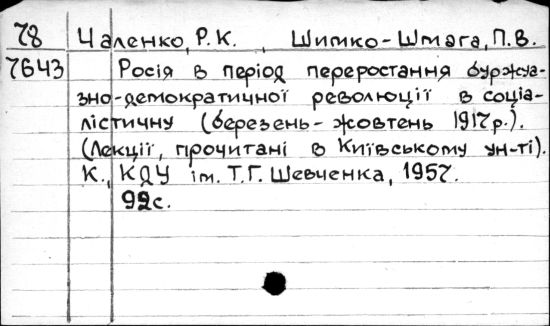 78 Чаленко, Р.К. , Шитко-Шмага, П.В.
7643 Росія в період переростання буржуа-
зно-демократичної революції в соціа-
лістичну (березень - жовтень 1917р.).
(Лекції, прочитані в Київському ун-ті).
К., КДУ ім. Т.Г. Шевченка, 1957.
99с.